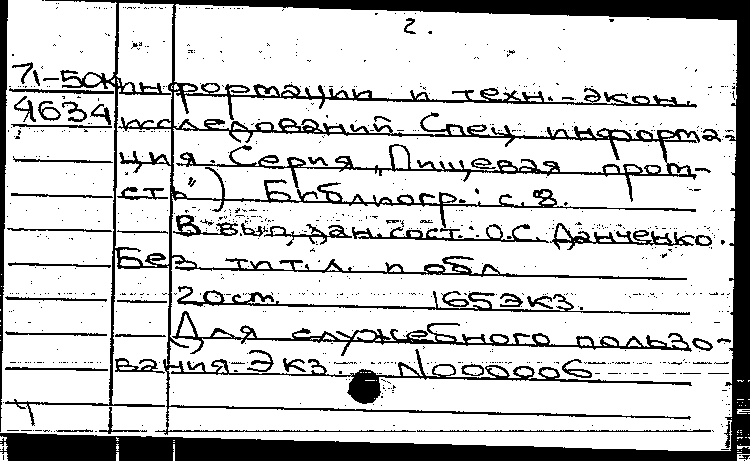 2.
71-50К информации и техн.-экон.
4634 исследований. Спец. информа-
ция. Серия „Пищевая пром-
сть") Библиогр.: с. 8.
В вып. дан. сост.: О.С. Данченко.
Без тит. л. и обл.
20 см. 165 экз.
Для служебного пользо-
вания. Экз. N000006